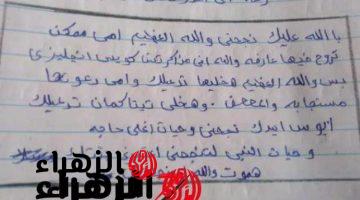 بالله عليك نجحنى والله العظيم امى ممكن
تروح فيها عارفه والله انى مذاكرتش كويس انجليزى
بس والله العظيم هخليها تدعيلك وامى دعوتها
مستجابه وهخلى تيتا كمان تدعيلك
ابوس ايدك نجحنى وحيات اغلى حاجه
وحيات النبى لتنجحنى
هموت والله
الزهراء
الزهراء